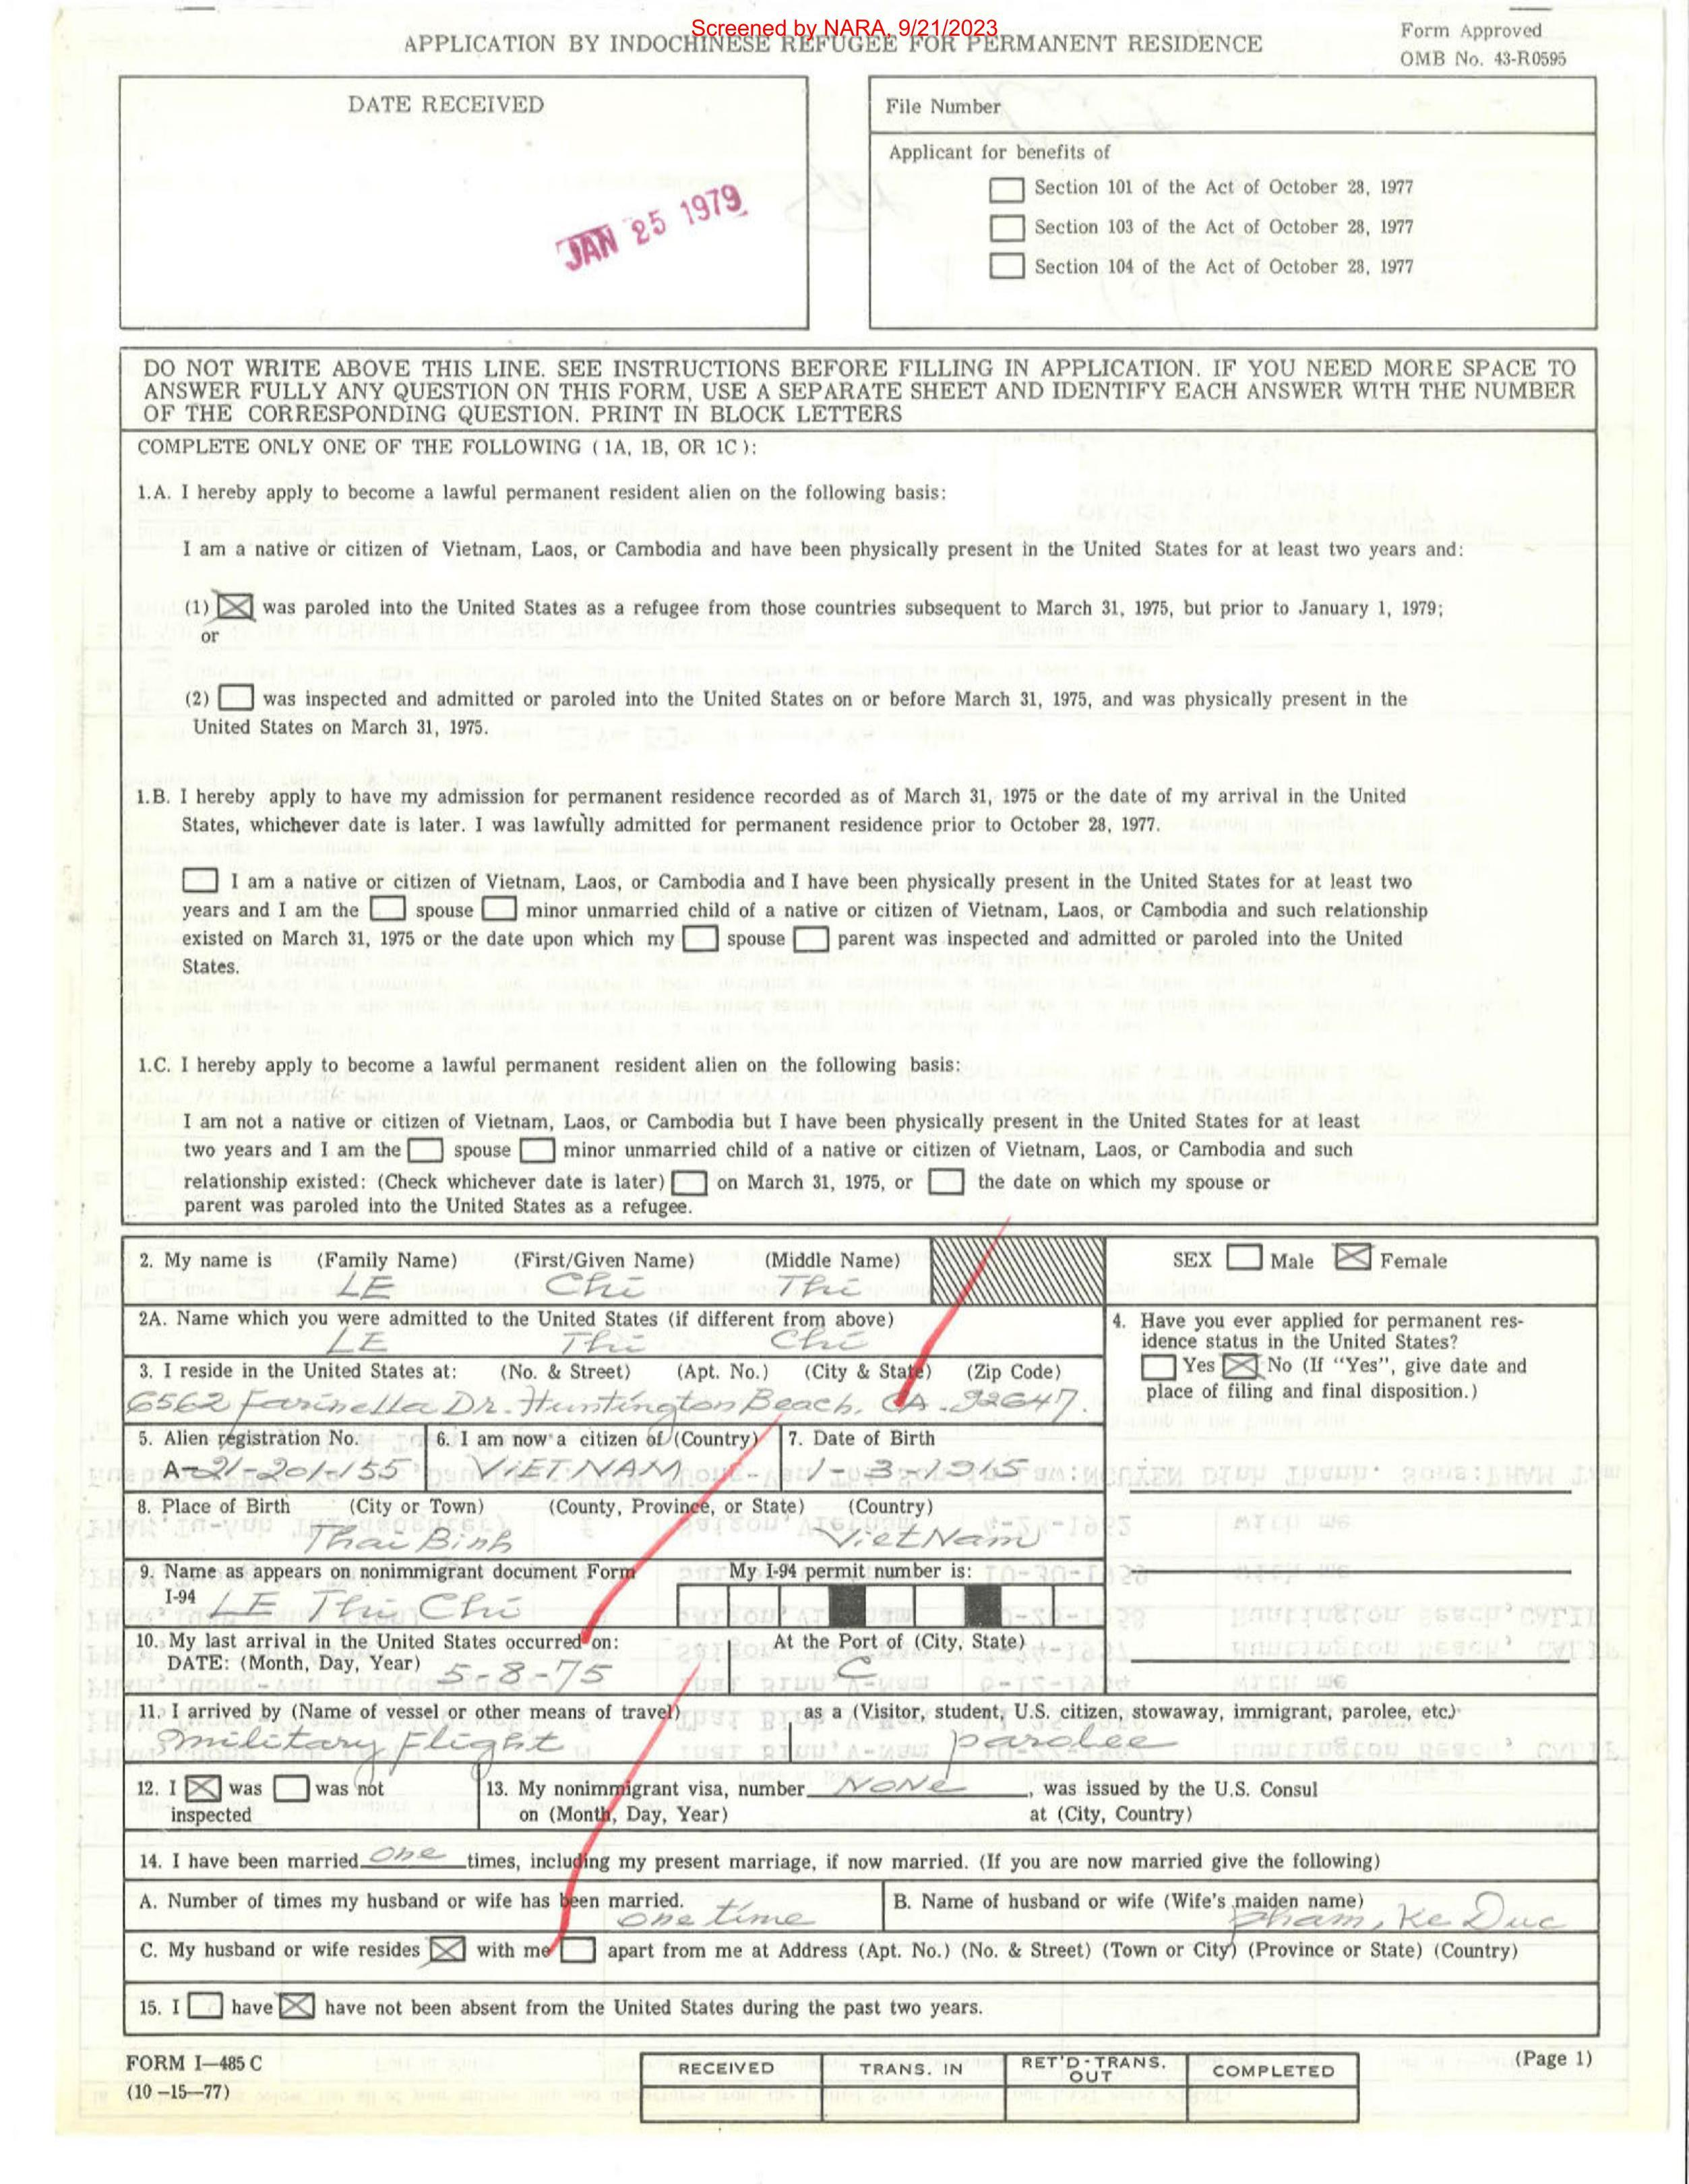 Screened by NARA, 9/21/2023
APPLICATION BY INDOCHINESE REFUGEE FOR PERMANENT RESIDENCE
Form Approved
OMB No. 43-R0595
DATE RECEIVED
JAN 25 1979
File Number
Applicant for benefits of
Section 101 of the Act of October 28, 1977
Section 103 of the Act of October 28, 1977
Section 104 of the Act of October 28, 1977
DO NOT WRITE ABOVE THIS LINE. SEE INSTRUCTIONS BEFORE FILLING IN APPLICATION. IF YOU NEED MORE SPACE TO
ANSWER FULLY ANY QUESTION ON THIS FORM, USE A SEPARATE SHEET AND IDENTIFY EACH ANSWER WITH THE NUMBER
OF THE CORRESPONDING QUESTION. PRINT IN BLOCK LETTERS
COMPLETE ONLY ONE OF THE FOLLOWING (1A, 1B, OR 1C):
1.A. I hereby apply to become a lawful permanent resident alien on the following basis:
I am a native or citizen of Vietnam, Laos, or Cambodia and have been physically present in the United States for at least two years and:
(1) ☒ was paroled into the United States as a refugee from those countries subsequent to March 31, 1975, but prior to January 1, 1979;
or
(2) ☐ was inspected and admitted or paroled into the United States on or before March 31, 1975, and was physically present in the
United States on March 31, 1975.
1.B. I hereby apply to have my admission for permanent residence recorded as of March 31, 1975 or the date of my arrival in the United
States, whichever date is later. I was lawfully admitted for permanent residence prior to October 28, 1977.
☐ I am a native or citizen of Vietnam, Laos, or Cambodia and I have been physically present in the United States for at least two
years and I am the ☐ spouse ☐ minor unmarried child of a native or citizen of Vietnam, Laos, or Cambodia and such relationship
existed on March 31, 1975 or the date upon which my ☐ spouse ☐ parent was inspected and admitted or paroled into the United
States.
1.C. I hereby apply to become a lawful permanent resident alien on the following basis:
I am not a native or citizen of Vietnam, Laos, or Cambodia but I have been physically present in the United States for at least
two years and I am the ☐ spouse ☐ minor unmarried child of a native or citizen of Vietnam, Laos, or Cambodia and such
relationship existed: (Check whichever date is later) ☐ on March 31, 1975, or ☐ the date on which my spouse or
parent was paroled into the United States as a refugee.
2. My name is (Family Name) (First/Given Name) (Middle Name)
LE Chi Thi
SEX ☐ Male ☒ Female
2A. Name which you were admitted to the United States (if different from above)
LE Thi Chi
3. I reside in the United States at: (No. & Street) (Apt. No.) (City & State) (Zip Code)
6562 Farinella Dr. Huntington Beach, CA. 92647.
4. Have you ever applied for permanent res-
idence status in the United States?
☐ Yes ☒ No (If "Yes", give date and
place of filing and final disposition.)
5. Alien registration No.
A-21-201-155
6. I am now a citizen of (Country)
VIETNAM
7. Date of Birth
1-3-1915
8. Place of Birth (City or Town) (County, Province, or State) (Country)
Thai Binh VietNam
9. Name as appears on nonimmigrant document Form
I-94 LE Thi Chi
My I-94 permit number is:
10. My last arrival in the United States occurred on:
DATE: (Month, Day, Year) 5-8-75
At the Port of (City, State)
C
11. I arrived by (Name of vessel or other means of travel)
military Flight
as a (Visitor, student, U.S. citizen, stowaway, immigrant, parolee, etc.)
parolee
12. I ☒ was ☐ was not
inspected
13. My nonimmigrant visa, number NONe, was issued by the U.S. Consul
on (Month, Day, Year) at (City, Country)
14. I have been married one times, including my present marriage, if now married. (If you are now married give the following)
A. Number of times my husband or wife has been married.
one time
B. Name of husband or wife (Wife's maiden name)
Pham, Ke Duc
C. My husband or wife resides ☒ with me ☐ apart from me at Address (Apt. No.) (No. & Street) (Town or City) (Province or State) (Country)
15. I ☐ have ☒ have not been absent from the United States during the past two years.
FORM I-485 C
(10-15-77)
RECEIVED
TRANS. IN
RET'D-TRANS. OUT
COMPLETED
(Page 1)